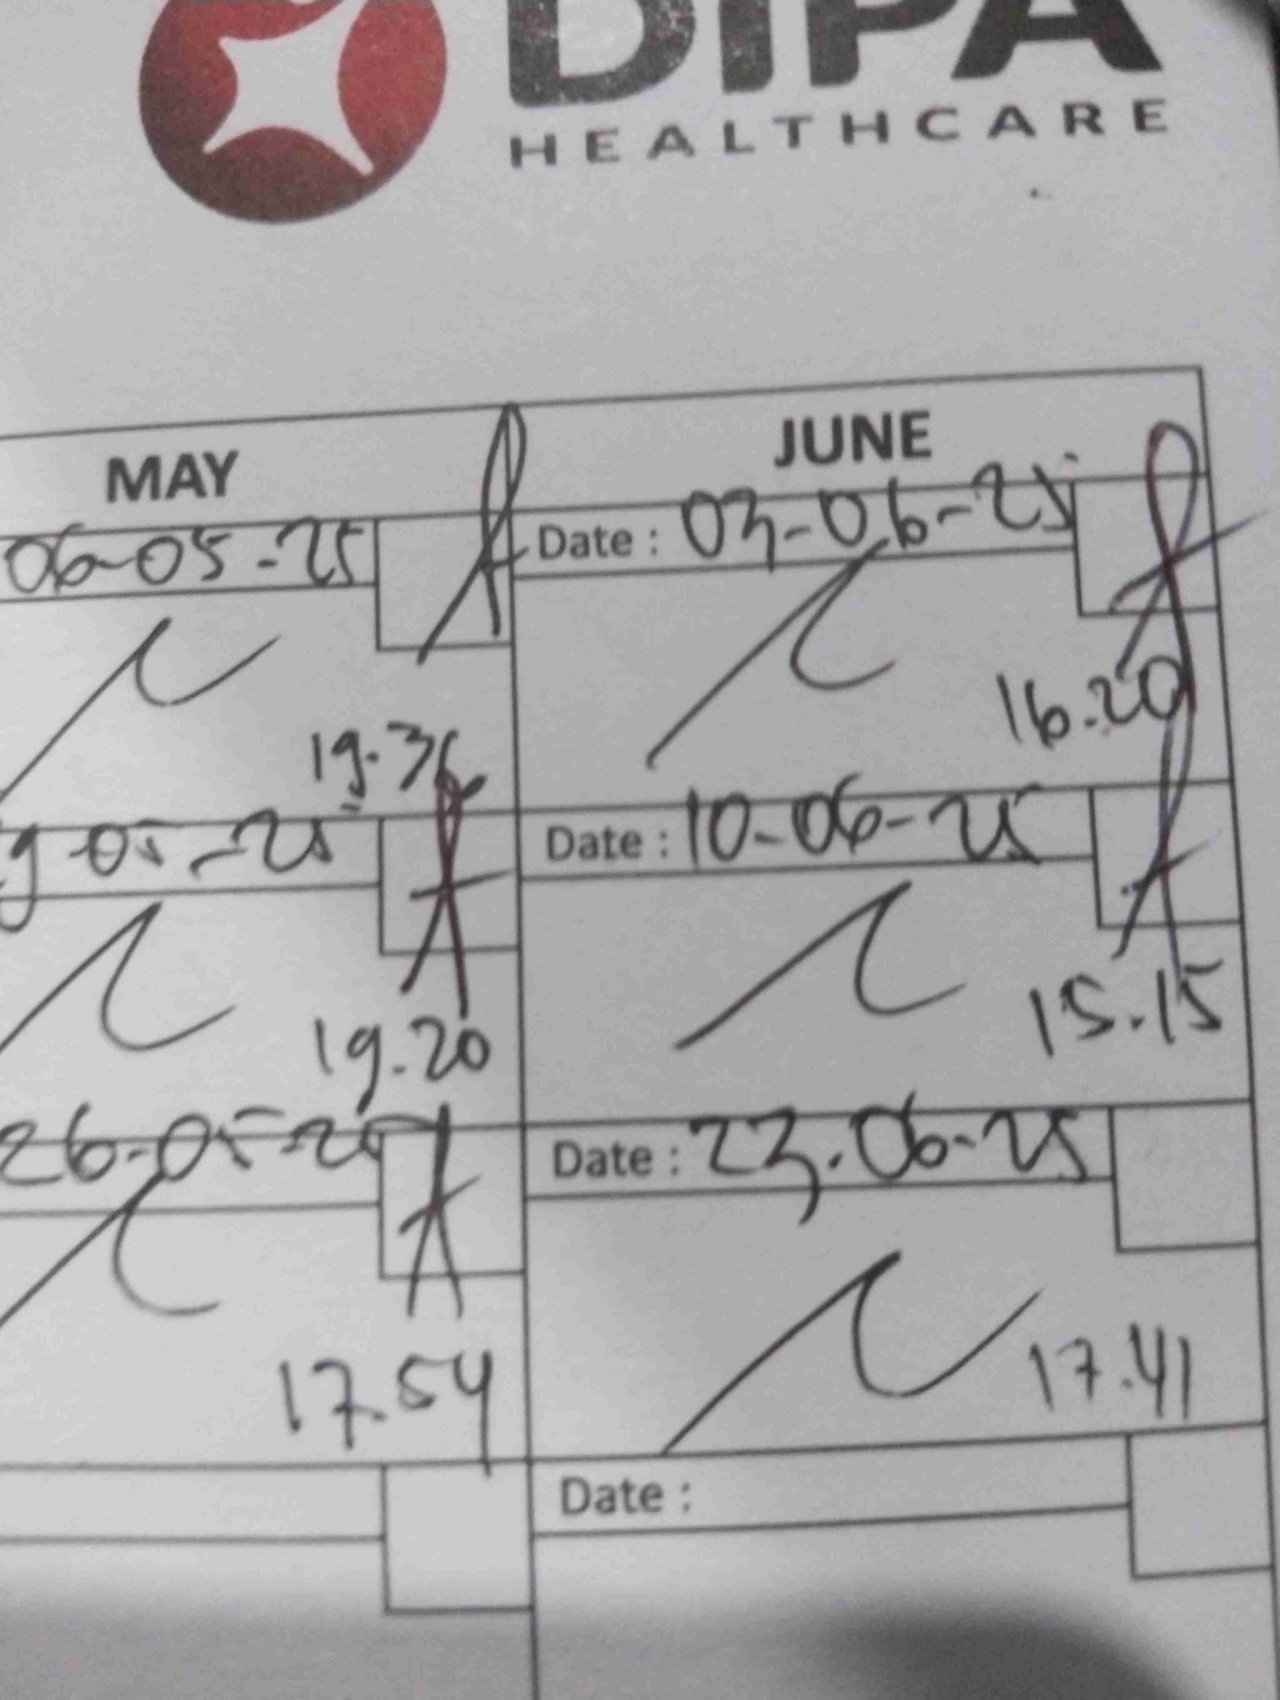 DIPA
HEALTHCARE
MAY
JUNE
06-05-25
Date : 03-06-25
19.36
16.20
9-05-25
Date : 10-06-25
19.20
15.15
26-05-25
Date : 23.06-25
17.54
17.41
Date :